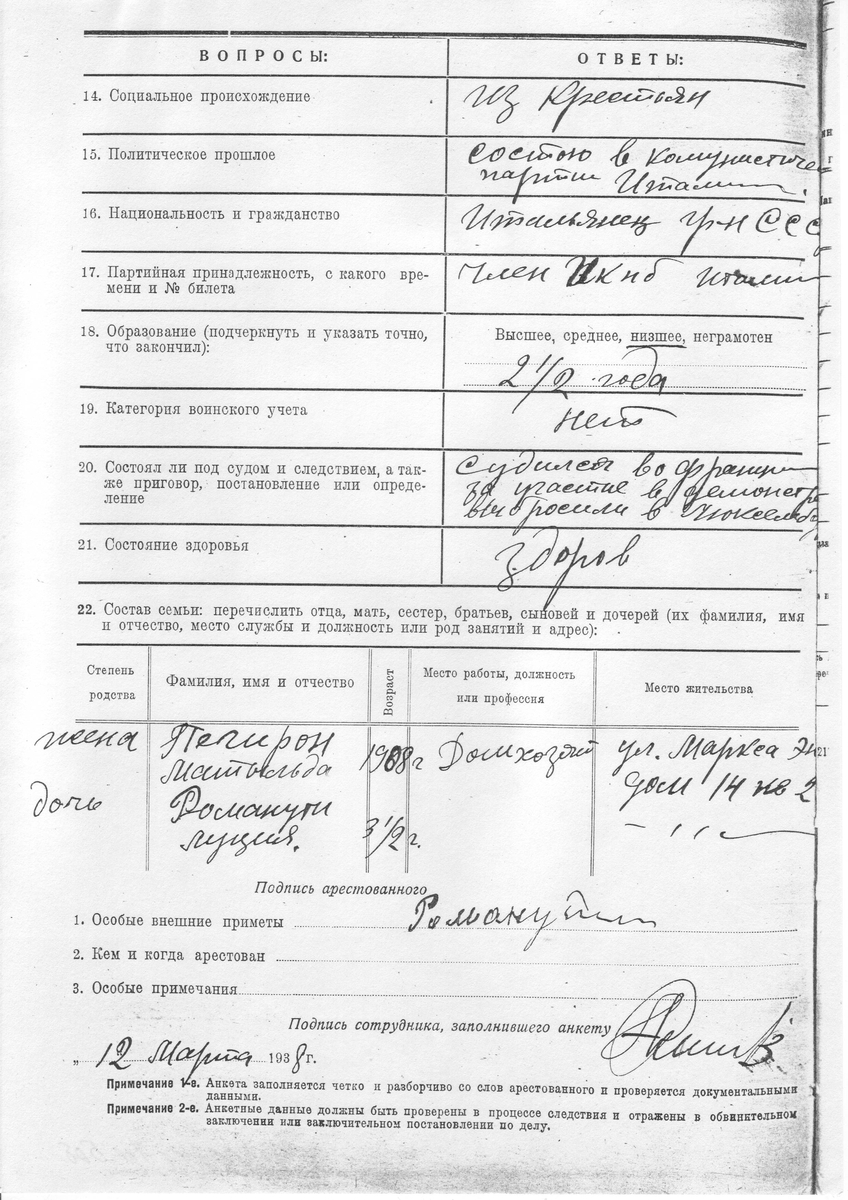 ВОПРОСЫ: ОТВЕТЫ:
14. Социальное происхождение
из Крестьян
15. Политическое прошлое
состою в комунистиче
партии Италии.
16. Национальность и гражданство
Итальянец гр-н ССС
17. Партийная принадлежность, с какого вре-
мени и № билета
Член
18. Образование (подчеркнуть и указать точно,
что закончил):
Высшее, среднее, низшее, неграмотен
2 1/2 года
19. Категория воинского учета
нет
20. Состоял ли под судом и следствием, а так-
же приговор, постановление или опреде-
ление
судился во франции
за участие в демонстра
выбросили в Люксембу
21. Состояние здоровья
здоров
22. Состав семьи: перечислить отца, мать, сестер, братьев, сыновей и дочерей (их фамилия, имя
и отчество, место службы и должность или род занятий и адрес):
Степень
родства
Фамилия, имя и отчество
Возраст
Место работы, должность
или профессия
Место жительства
жена Пегирон 1908 г Домхозяй ул. Маркса Эн
Матыльда дом 14 кв 2
дочь Романути
луция. 3 1/2 г. — ,, —
Подпись арестованного
1. Особые внешние приметы Романути
2. Кем и когда арестован
3. Особые примечания
Подпись сотрудника, заполнившего анкету
„ 12 Марта 1938 г.
Примечание 1-е. Анкета заполняется четко и разборчиво со слов арестованного и проверяется документальными
данными.
Примечание 2-е. Анкетные данные должны быть проверены в процессе следствия и отражены в обвинительном
заключении или заключительном постановлении по делу.